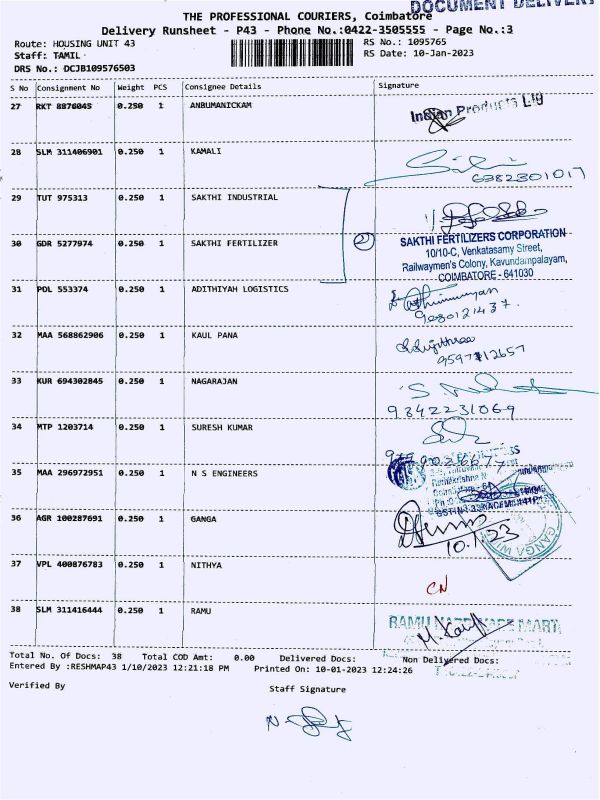 DOCUMENT DELIVERY
THE PROFESSIONAL COURIERS, Coimbatore
Delivery Runsheet - P43 - Phone No.:0422-3505555 - Page No.:3
Route: HOUSING UNIT 43
RS No.: 1095765
Staff: TAMIL
RS Date: 10-Jan-2023
DRS No.: DCJB109576503
S No Consignment No Weight PCS Consignee Details Signature
27 RKT 8876045 0.250 1 ANBUMANICKAM
Indian Products Ltd
28 SLM 311406901 0.250 1 KAMALI
6382301017
29 TUT 975313 0.250 1 SAKTHI INDUSTRIAL
30 GDR 5277974 0.250 1 SAKTHI FERTILIZER
2
SAKTHI FERTILIZERS CORPORATION
10/10-C, Venkatasamy Street,
Railwaymen's Colony, Kavundampalayam,
COIMBATORE - 641030
31 POL 553374 0.250 1 ADITHIYAH LOGISTICS
32 MAA 568862906 0.250 1 KAUL PANA
33 KUR 694302845 0.250 1 NAGARAJAN
9842231069
34 MTP 1203714 0.250 1 SURESH KUMAR
35 MAA 296972951 0.250 1 N S ENGINEERS
36 AGR 100287691 0.250 1 GANGA
10.1.23
37 VPL 400876783 0.250 1 NITHYA
CN
38 SLM 311416444 0.250 1 RAMU
RAMU HARDWARE MART
Total No. Of Docs: 38 Total COD Amt: 0.00 Delivered Docs: Non Delivered Docs:
Entered By :RESHMAP43 1/10/2023 12:21:18 PM Printed On: 10-01-2023 12:24:26
Verified By
Staff Signature